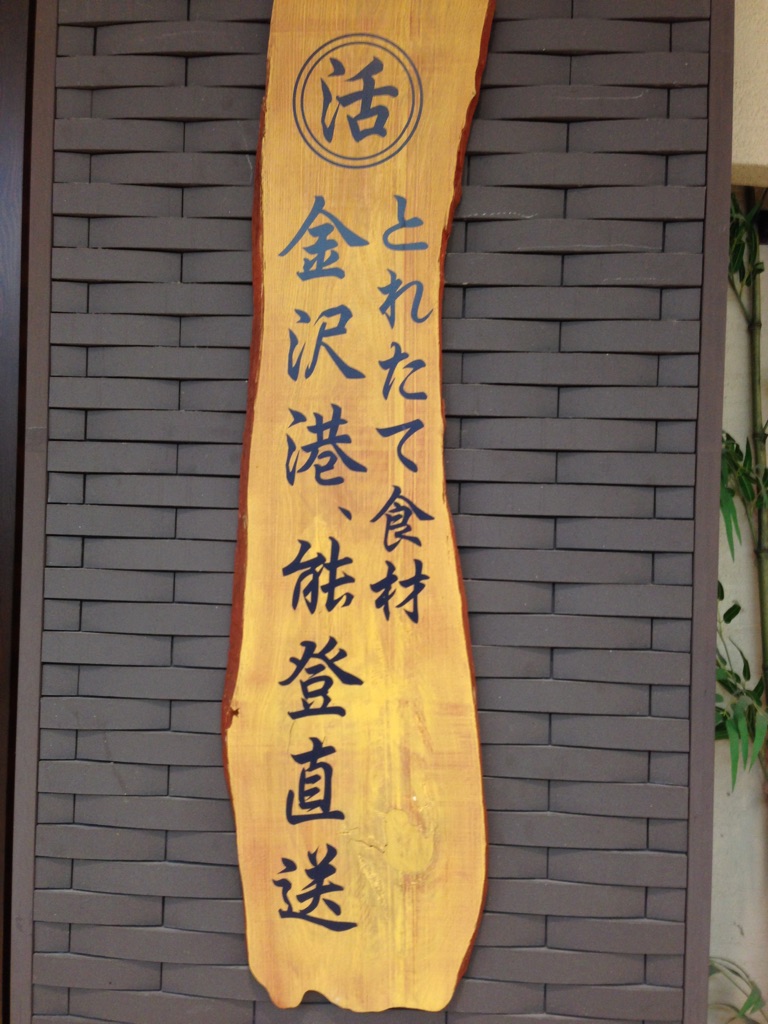 活
とれたて食材
金沢港、能登直送